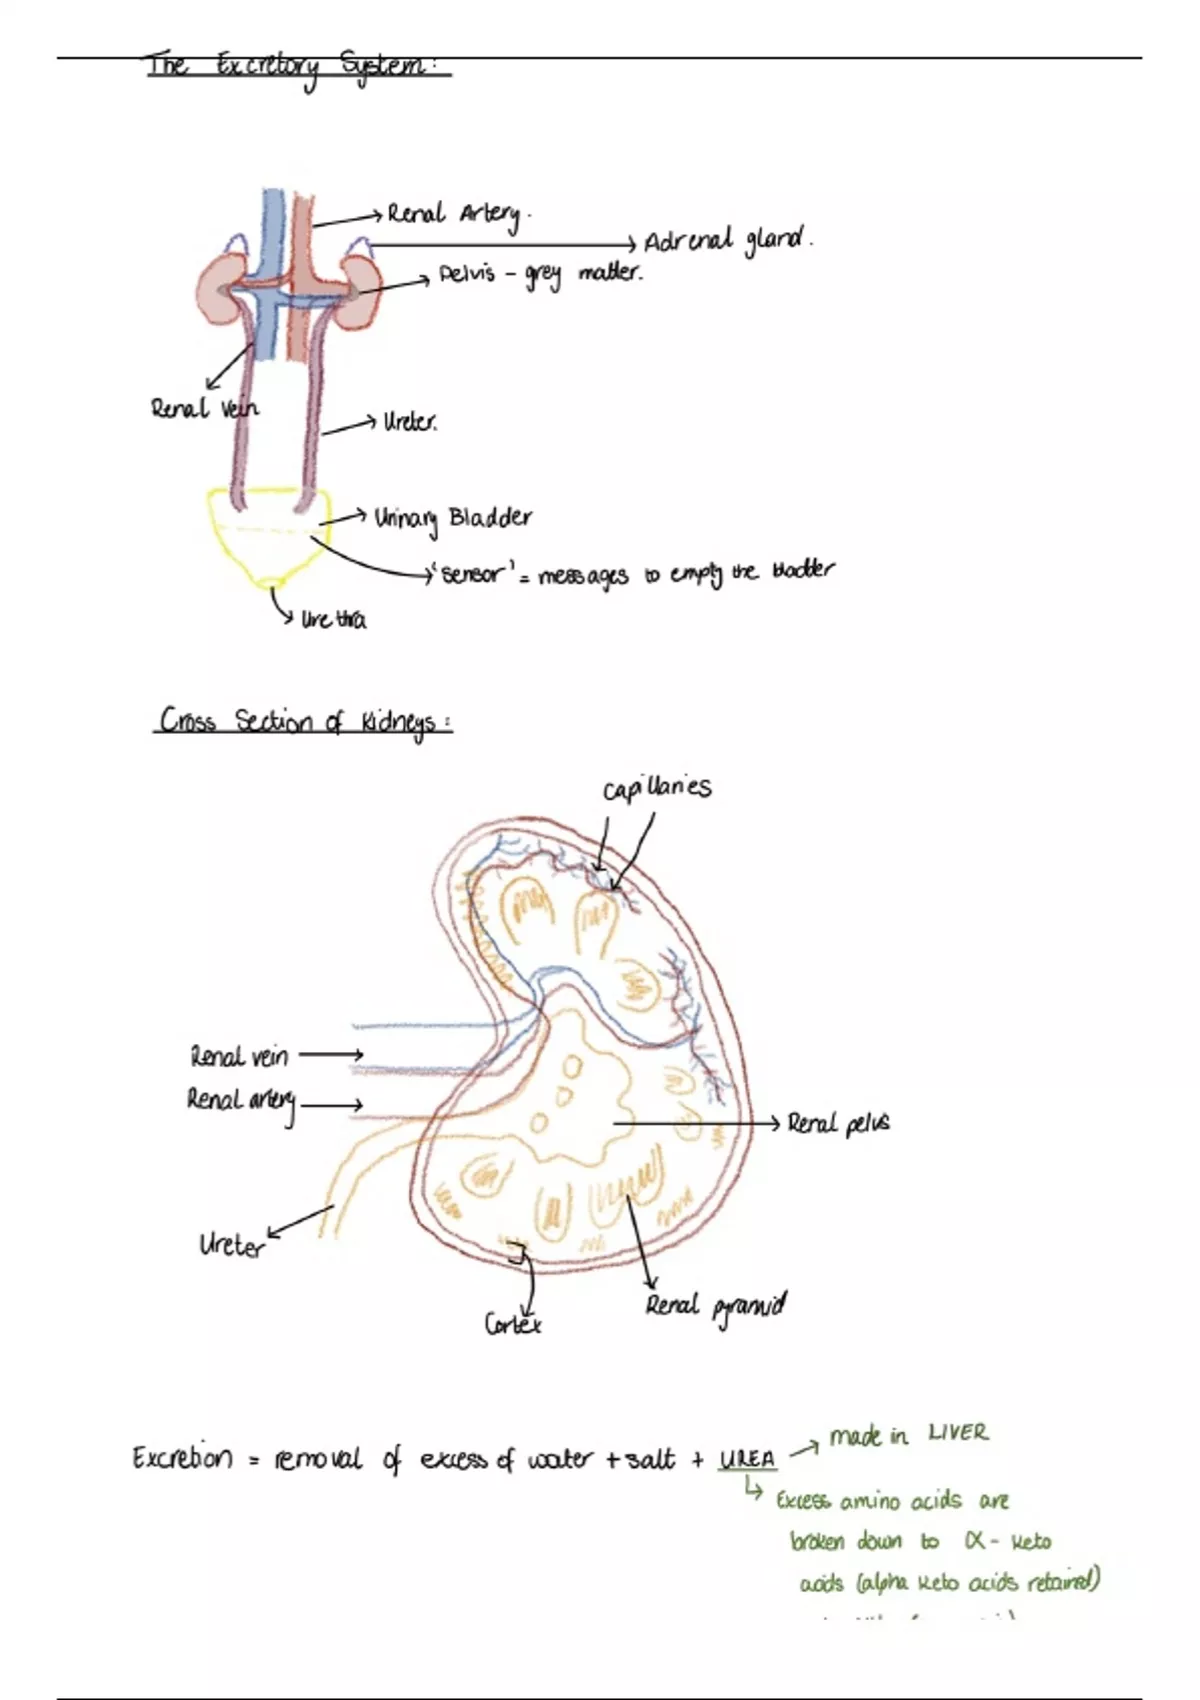 The Excretory System:
Renal Artery.
Adrenal gland.
Pelvis - grey matter.
Renal vein
Ureter.
Urinary Bladder
'sensor' = messages to empty the bladder
Urethra
Cross Section of Kidneys:
capillaries
Renal vein
Renal artery
Renal pelvis
Ureter
Renal pyramid
Cortex
Excretion = removal of excess of water + salt + UREA
made in LIVER
Excess amino acids are
broken down to α- keto
acids (alpha keto acids retained)